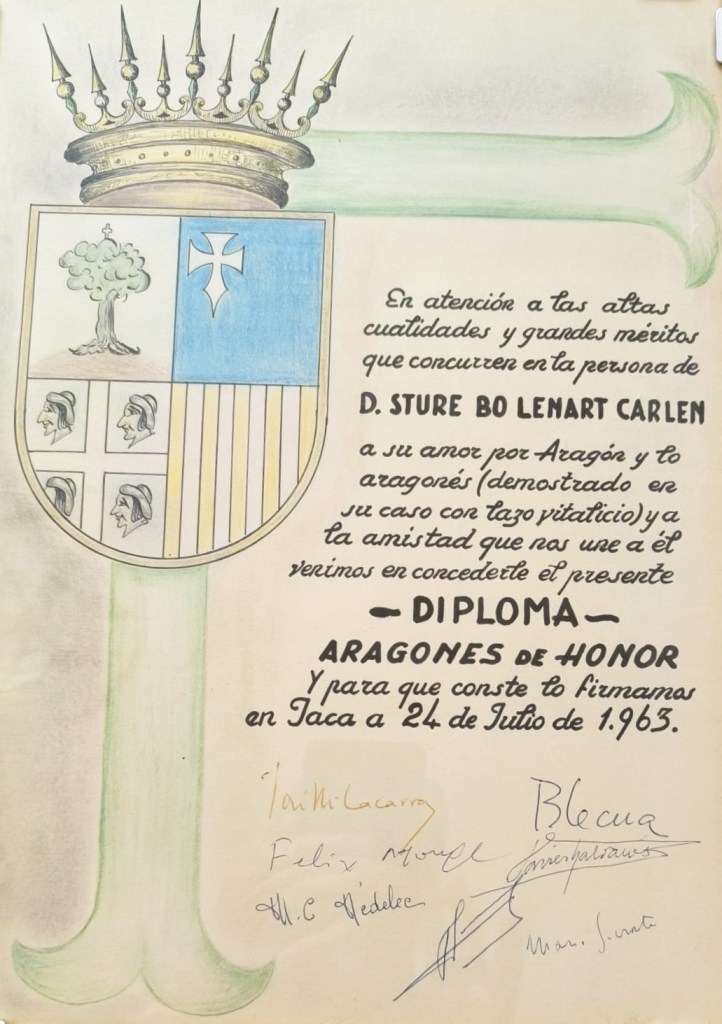 En atención a las altas
cualidades y grandes méritos
que concurren en la persona de
D. STURE BO LENART CARLEN
a su amor por Aragón y lo
aragonés (demostrado en
su caso con lazo vitalicio) y a
la amistad que nos une a él
venimos en concederle el presente
— DIPLOMA —
ARAGONES DE HONOR
Y para que conste lo firmamos
en Jaca a 24 de Julio de 1.963.
Lacarra
Blecua
Felix Monge
M. C Hédelec